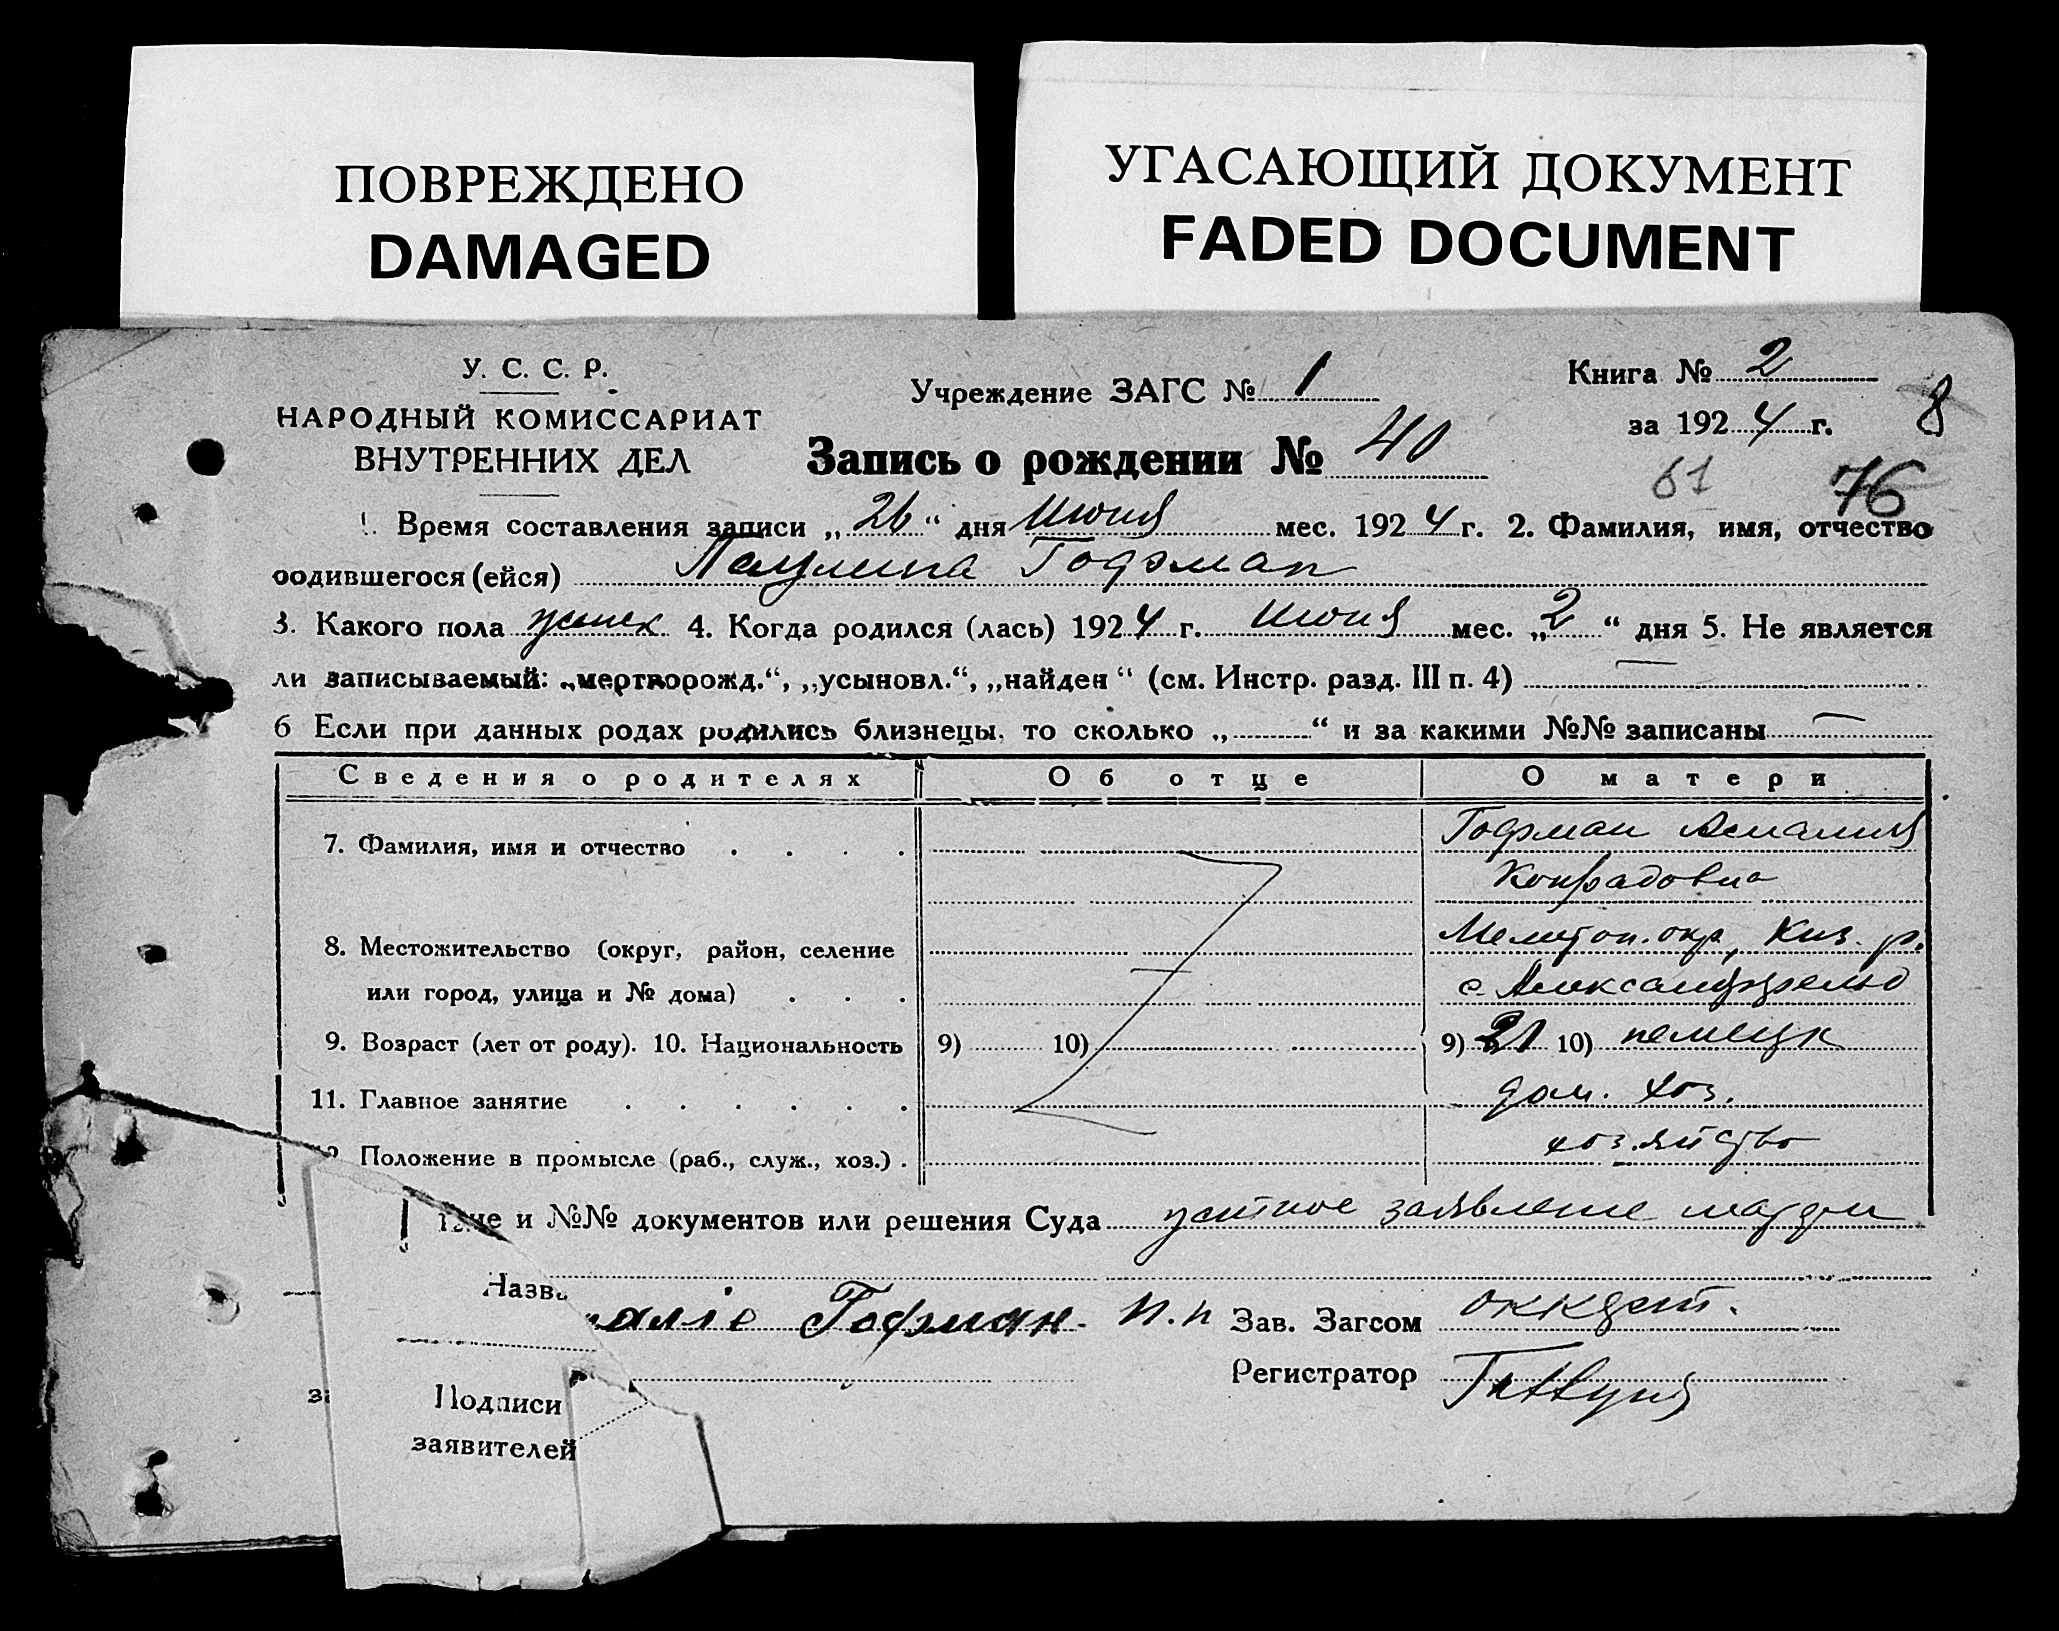 ПОВРЕЖДЕНО
DAMAGED
УГАСАЮЩИЙ ДОКУМЕНТ
FADED DOCUMENT
У. С. С. Р.
НАРОДНЫЙ КОМИССАРИАТ
ВНУТРЕННИХ ДЕЛ
Учреждение ЗАГС № 1
Запись о рождении № 40
Книга № 2
за 1924 г.
8
61 76
1. Время составления записи „26“ дня Июня мес. 1924 г. 2. Фамилия, имя, отчество
родившегося (ейся) Паулина Гофман
3. Какого пола женск 4. Когда родился (лась) 1924 г. Июня мес. „2“ дня 5. Не является
ли записываемый: „мертворожд.“, „усыновл.“, „найден“ (см. Инстр. разд. III п. 4) —
6 Если при данных родах родились близнецы, то сколько „ “ и за какими №№ записаны —
Сведения о родителях Об отце О матери
7. Фамилия, имя и отчество Гофман Амалия
Конрадовна
8. Местожительство (округ, район, селение Мелитоп. окр, Киз. р.
или город, улица и № дома) с. Александрфельд
9. Возраст (лет от роду). 10. Национальность 9) 10) 9) 21 10) немецк
11. Главное занятие дом. хоз.
Положение в промысле (раб., служ., хоз.) хозяйство
и №№ документов или решения Суда устное заявление матери
Назв
алiе Гофман. п.п Зав. Загсом
Регистратор
Подписи
заявителей